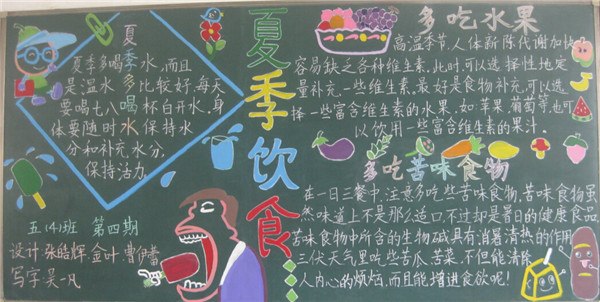 夏季多喝水
夏季多喝水,而且
是温水多比较好,每天
要喝七八喝杯白开水,身
体要随时水保持水
分和补充水分,
保持活力。
五(4)班 第四期
设计 张皓辉 金叶 曹伊蕾
写字 吴一凡
夏季饮食…
多吃水果
高温季节,人体新陈代谢加快
容易缺乏各种维生素,此时,可以选择性地定
量补充一些维生素,最好是食物补充,可以选
择一些富含维生素的水果,如苹果葡萄等,也可
以饮用一些富含维生素的果汁。
多吃苦味食物
在一日三餐中,注意多吃些苦味食物,苦味食物虽
然味道上不是那么适口,不过却是夏日的健康食品,
苦味食物中所含的生物碱具有消暑清热的作用
三伏天气里吃些苦瓜、苦菜,不但能清除
人内心的烦恼,而且能增进食欲呢!